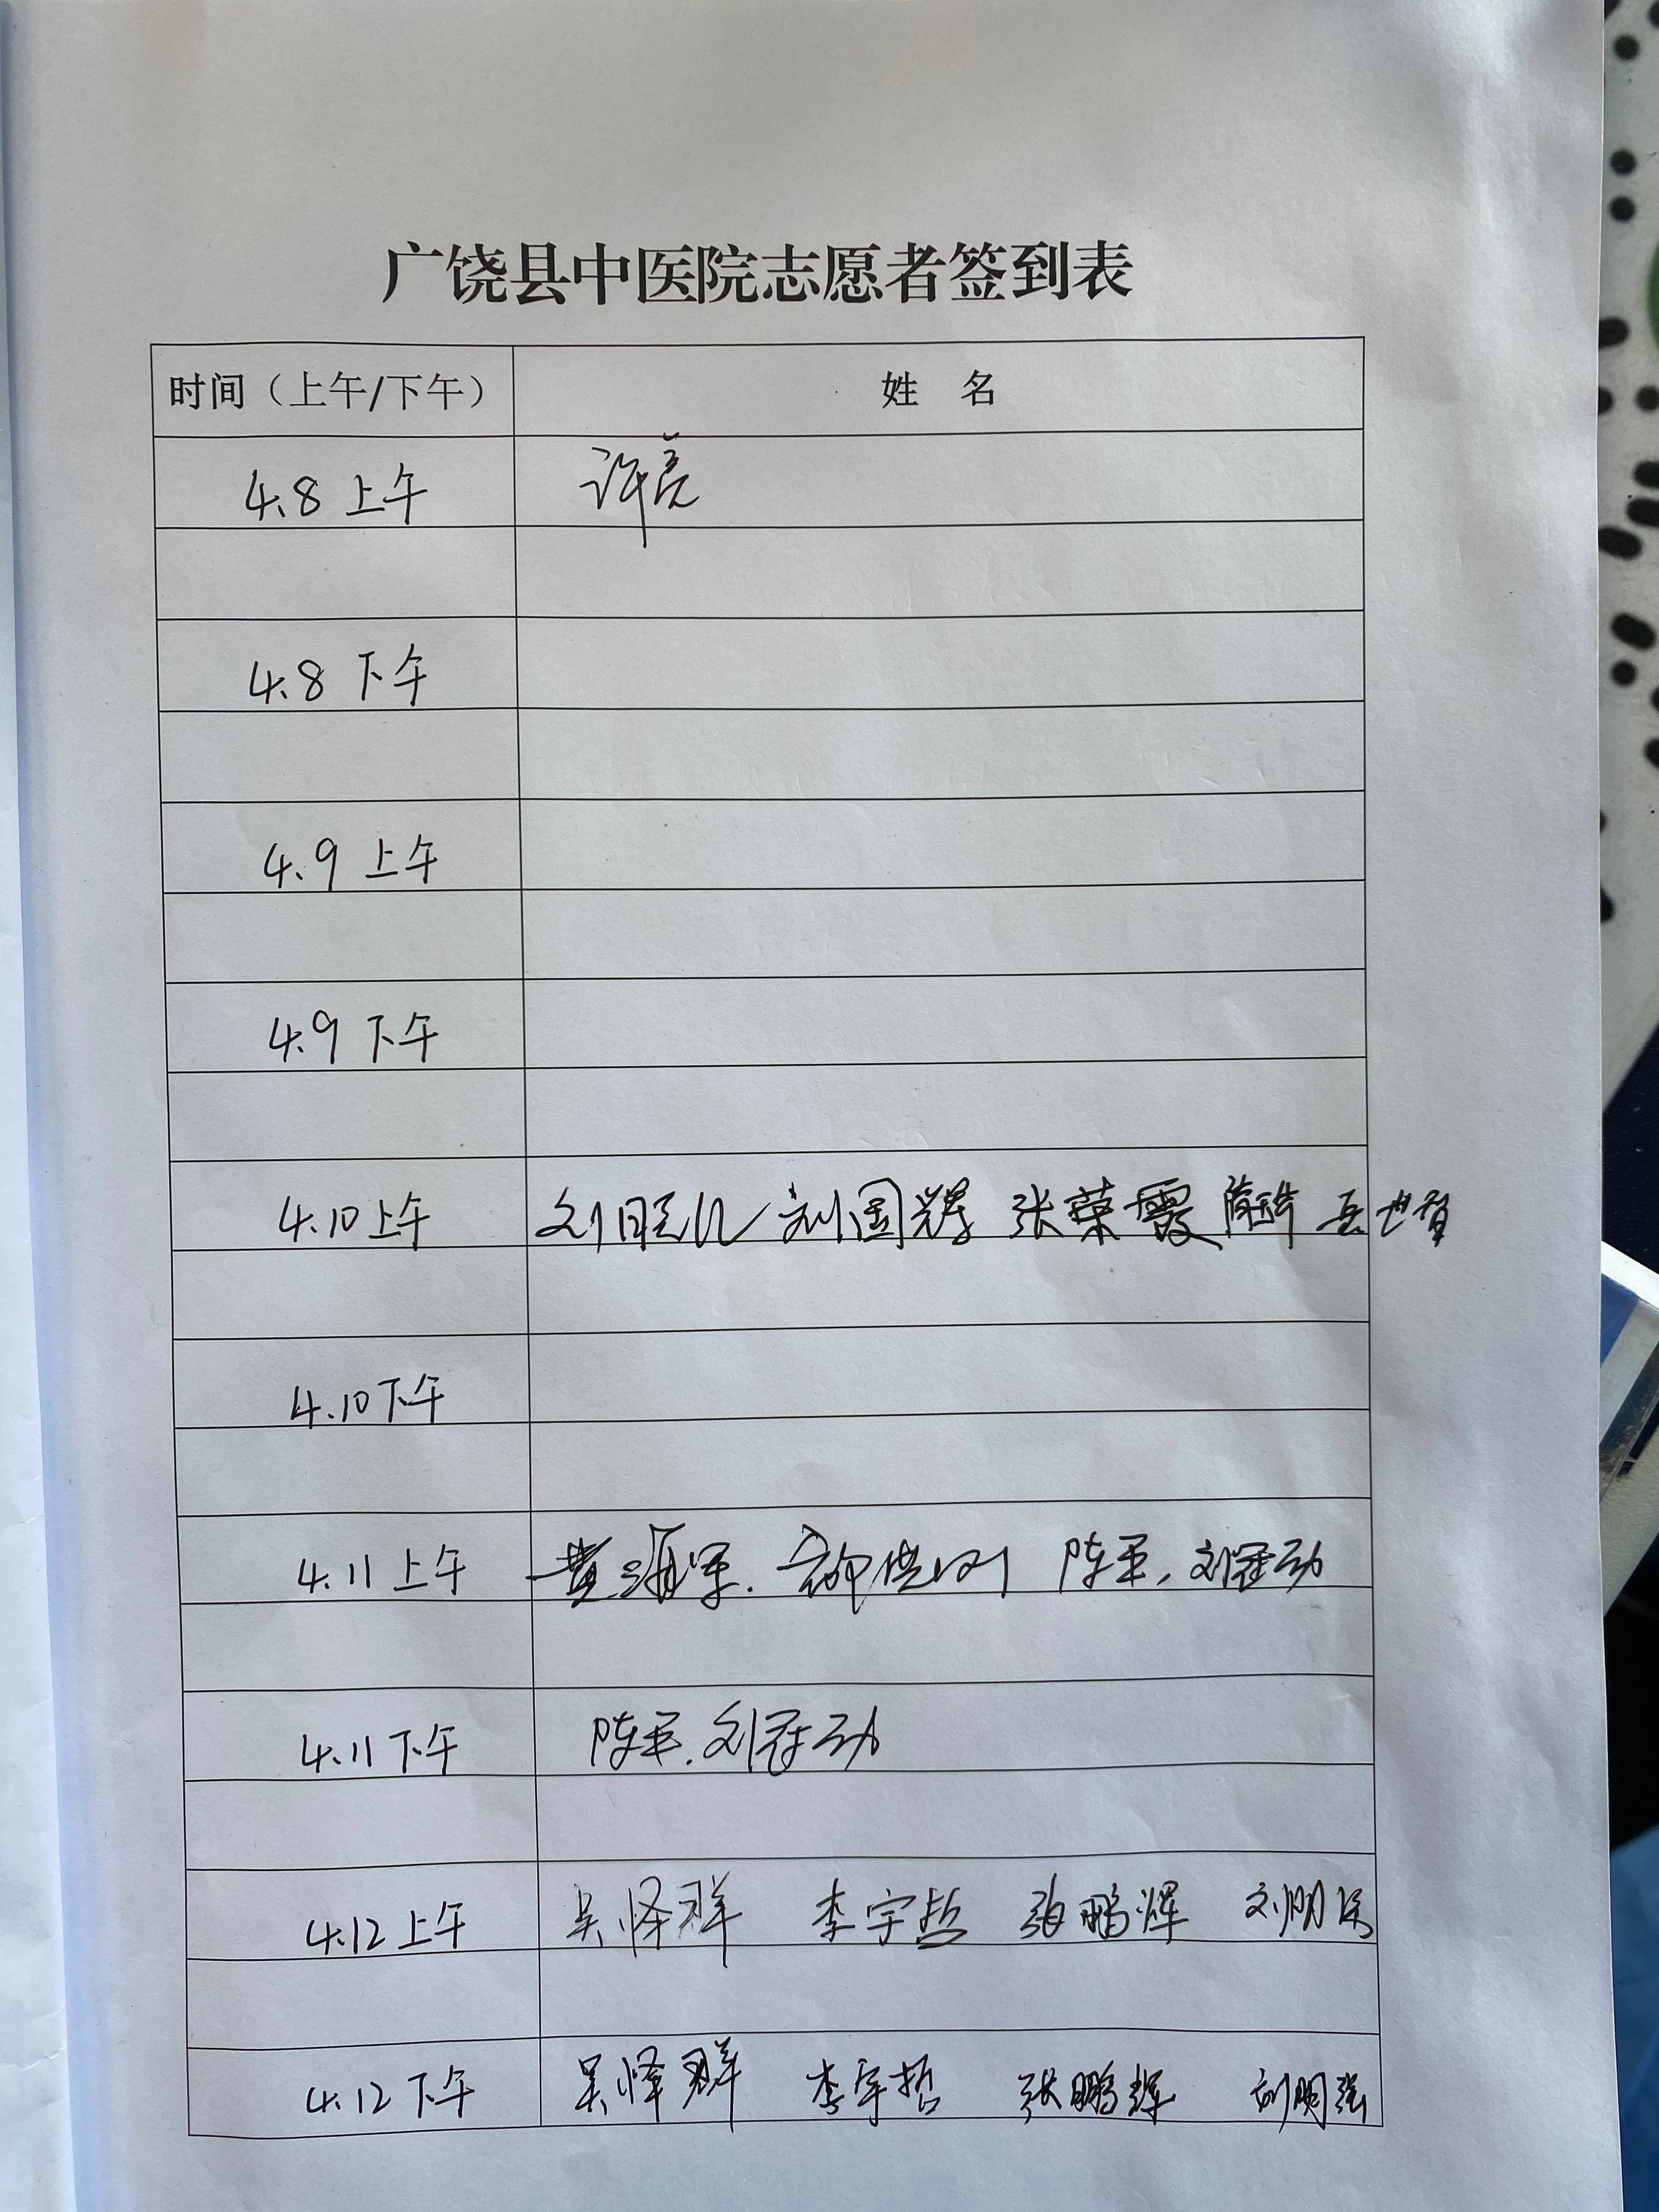 广饶县中医院志愿者签到表
时间（上午/下午） 姓 名
4.8 上午 许亮
4.8 下午
4.9 上午
4.9 下午
4.10上午 刘国辉 张荣霞
4.10下午
4.11 上午 黄海军. 陈平, 刘冠劲
4.11 下午 陈平. 刘冠劲
4.12 上午 吴怿群 李宇哲 张鹏辉 刘明强
4.12 下午 吴怿群 李宇哲 张鹏辉 刘明强